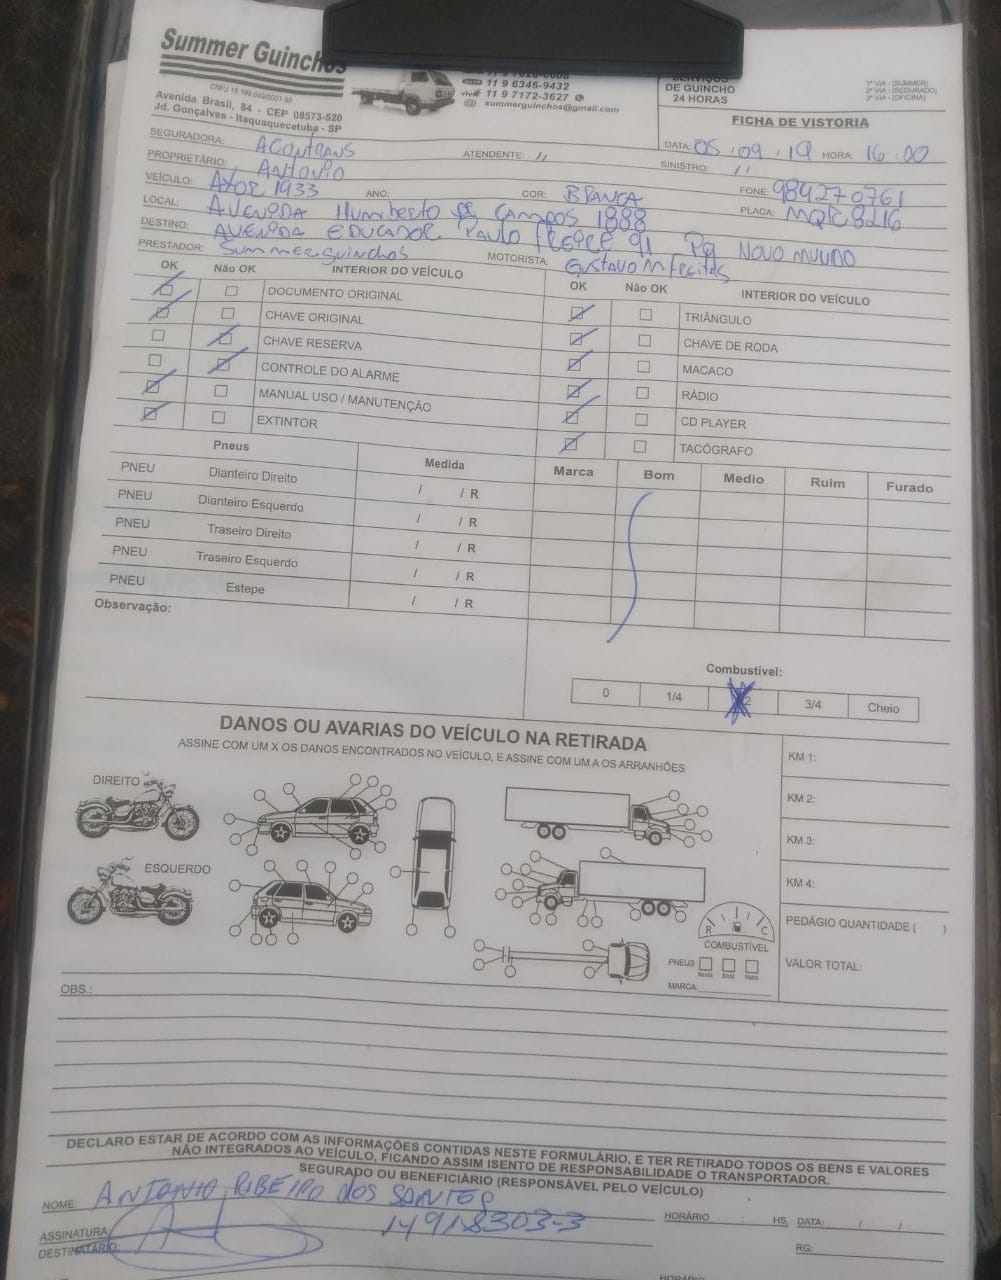 Summer Guinchos
CNPJ 18.190.049/0001-90
Avenida Brasil, 84 - CEP 08573-520
Jd. Gonçalves - Itaquaquecetuba - SP
11 9 6345-9432
vivo 11 9 7172-3627
@ summerguinchos@gmail.com
SERVIÇOS
DE GUINCHO
24 HORAS
1ª VIA - (SUMMER)
2ª VIA - (SEGURADO)
3ª VIA - (OFICINA)
FICHA DE VISTORIA
DATA: 05 . 09 . 19 HORA: 16:00
SEGURADORA: ACONTRANS ATENDENTE: " SINISTRO: "
PROPRIETÁRIO: ANTONIO FONE: 984270761
VEÍCULO: AXOR 1933 ANO: COR: BRANCA PLACA: MQR8216
LOCAL: AVENIDA Humberto de Campos 1888
DESTINO: AVENIDA EDUCADOR PAULO FREIRE 91 PQ NOVO MUNDO
PRESTADOR: Summerguinchos MOTORISTA: Gustavo M Freitas
OK Não OK INTERIOR DO VEÍCULO OK Não OK INTERIOR DO VEÍCULO
DOCUMENTO ORIGINAL TRIÂNGULO
CHAVE ORIGINAL CHAVE DE RODA
CHAVE RESERVA MACACO
CONTROLE DO ALARME RÁDIO
MANUAL USO / MANUTENÇÃO CD PLAYER
EXTINTOR TACÓGRAFO
Pneus Medida Marca Bom Medio Ruim Furado
PNEU Dianteiro Direito / / R
PNEU Dianteiro Esquerdo / / R
PNEU Traseiro Direito / / R
PNEU Traseiro Esquerdo / / R
PNEU Estepe / / R
Observação:
Combustível:
0 1/4 3/4 Cheio
DANOS OU AVARIAS DO VEÍCULO NA RETIRADA
ASSINE COM UM X OS DANOS ENCONTRADOS NO VEÍCULO, E ASSINE COM UM A OS ARRANHÕES
DIREITO
ESQUERDO
KM 1:
KM 2:
KM 3:
KM 4:
PEDÁGIO QUANTIDADE ( )
VALOR TOTAL:
R C
COMBUSTÍVEL
PNEUS
MARCA:
OBS.:
DECLARO ESTAR DE ACORDO COM AS INFORMAÇÕES CONTIDAS NESTE FORMULÁRIO, E TER RETIRADO TODOS OS BENS E VALORES
NÃO INTEGRADOS AO VEÍCULO, FICANDO ASSIM ISENTO DE RESPONSABILIDADE O TRANSPORTADOR.
SEGURADO OU BENEFICIÁRIO (RESPONSÁVEL PELO VEÍCULO)
NOME: ANTONIO RIBEIRO DOS SANTOS
HORÁRIO : HS. DATA: / /
ASSINATURA: 14918303-3
DESTINATÁRIO: RG:
HORÁRIO